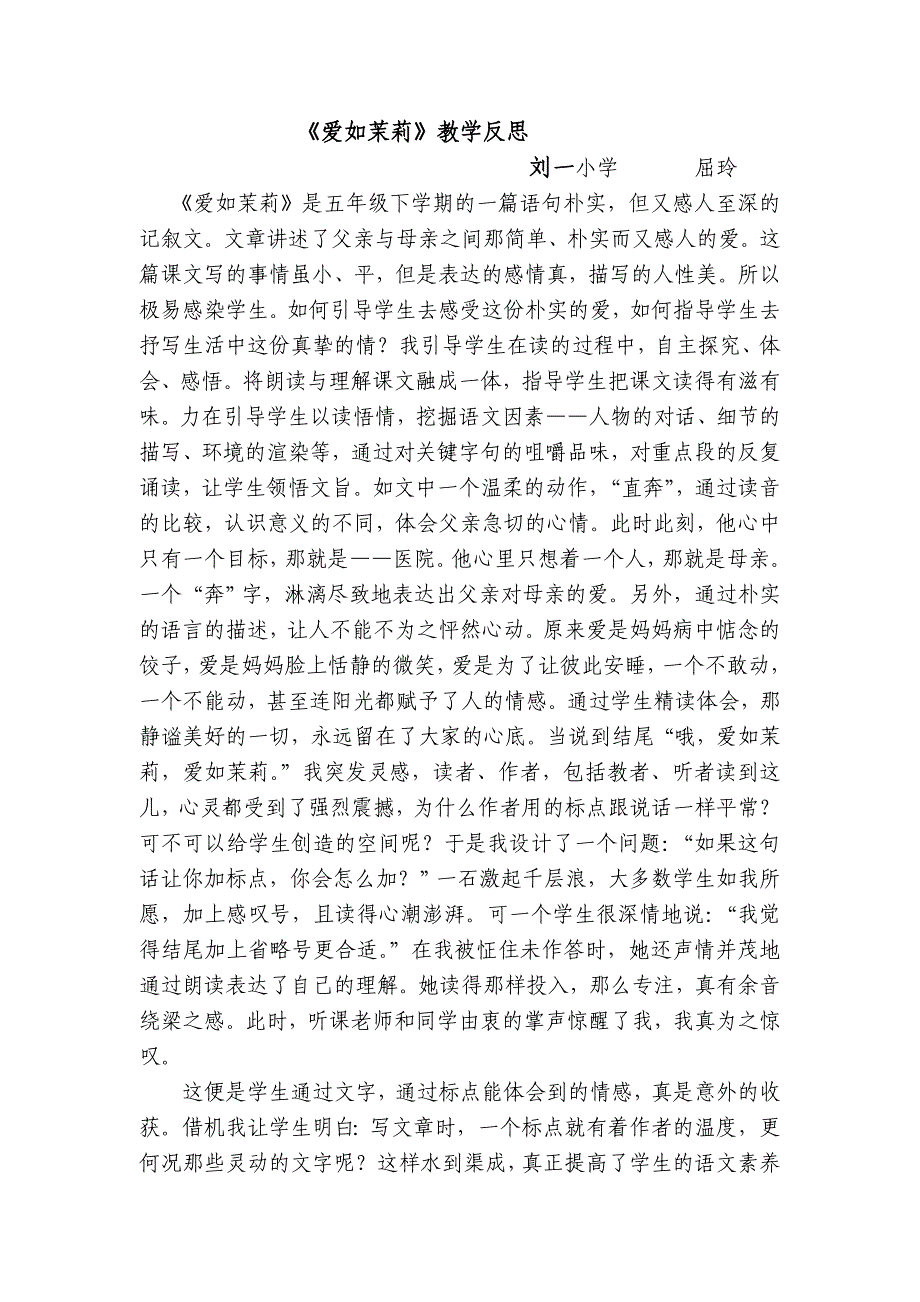 《爱如茉莉》教学反思
刘一小学 屈玲
《爱如茉莉》是五年级下学期的一篇语句朴实，但又感人至深的
记叙文。文章讲述了父亲与母亲之间那简单、朴实而又感人的爱。这
篇课文写的事情虽小、平，但是表达的感情真，描写的人性美。所以
极易感染学生。如何引导学生去感受这份朴实的爱，如何指导学生去
抒写生活中这份真挚的情？我引导学生在读的过程中，自主探究、体
会、感悟。将朗读与理解课文融成一体，指导学生把课文读得有滋有
味。力在引导学生以读悟情，挖掘语文因素——人物的对话、细节的
描写、环境的渲染等，通过对关键字句的咀嚼品味，对重点段的反复
诵读，让学生领悟文旨。如文中一个温柔的动作，“直奔”，通过读音
的比较，认识意义的不同，体会父亲急切的心情。此时此刻，他心中
只有一个目标，那就是——医院。他心里只想着一个人，那就是母亲。
一个“奔”字，淋漓尽致地表达出父亲对母亲的爱。另外，通过朴实
的语言的描述，让人不能不为之怦然心动。原来爱是妈妈病中惦念的
饺子，爱是妈妈脸上恬静的微笑，爱是为了让彼此安睡，一个不敢动，
一个不能动，甚至连阳光都赋予了人的情感。通过学生精读体会，那
静谧美好的一切，永远留在了大家的心底。当说到结尾“哦，爱如茉
莉，爱如茉莉。”我突发灵感，读者、作者，包括教者、听者读到这
儿，心灵都受到了强烈震撼，为什么作者用的标点跟说话一样平常？
可不可以给学生创造的空间呢？于是我设计了一个问题：“如果这句
话让你加标点，你会怎么加？”一石激起千层浪，大多数学生如我所
愿，加上感叹号，且读得心潮澎湃。可一个学生很深情地说：“我觉
得结尾加上省略号更合适。”在我被怔住未作答时，她还声情并茂地
通过朗读表达了自己的理解。她读得那样投入，那么专注，真有余音
绕梁之感。此时，听课老师和同学由衷的掌声惊醒了我，我真为之惊
叹。
这便是学生通过文字，通过标点能体会到的情感，真是意外的收
获。借机我让学生明白：写文章时，一个标点就有着作者的温度，更
何况那些灵动的文字呢？这样水到渠成，真正提高了学生的语文素养